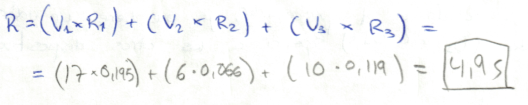 R = (V₁ × R₁) + (V₂ × R₂) + (V₃ × R₃) =
= (17 · 0,195) + (6 · 0,066) + (10 · 0,119) = 4,95